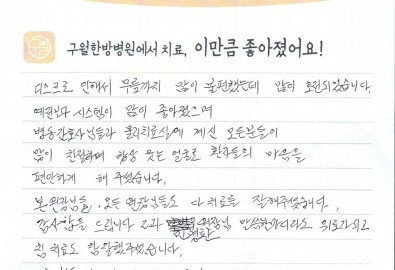 구월한방병원에서 치료, 이만큼 좋아졌어요!
디스크로 인해서 무릎까지 많이 불편했는데 많이 호전되었습니다.
예전보다 시스템이 많이 좋아졌으며
병동간호사님들과 물리치료실에 계신 모든분들이
많이 친절하며 항상 웃는 얼굴로 환자들의 마음을
편안하게 해 주셨습니다.
본원장님들, 모든 원장님들도 다 치료를 잘해주셨습니다.
감사함을 드립니다 2과 원장님, 말씀하시더라도 위로가 되고
침 치료도 잘해주셨습니다.